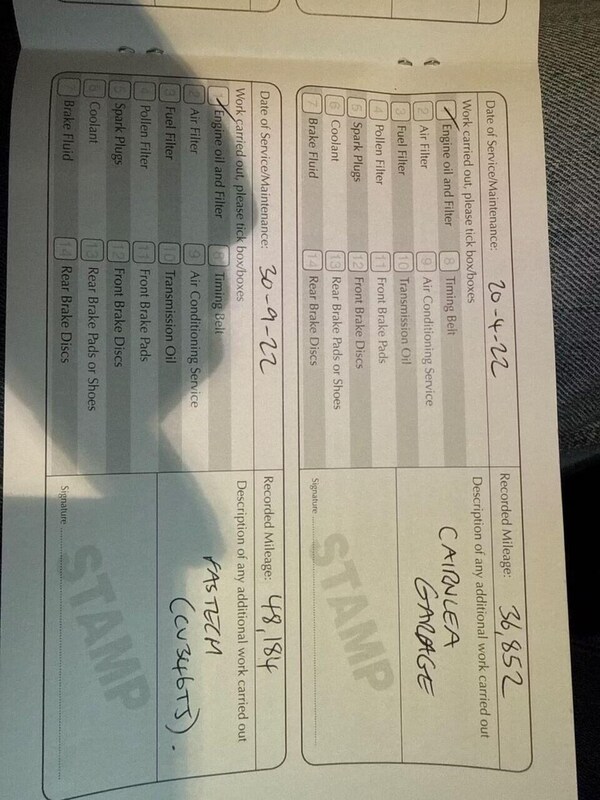 Date of Service/Maintenance: 20-4-22
Recorded Mileage: 36,852
Work carried out, please tick box/boxes
Description of any additional work carried out
1 Engine oil and Filter
8 Timing Belt
2 Air Filter
9 Air Conditioning Service
3 Fuel Filter
10 Transmission Oil
4 Pollen Filter
11 Front Brake Pads
5 Spark Plugs
12 Front Brake Discs
6 Coolant
13 Rear Brake Pads or Shoes
7 Brake Fluid
14 Rear Brake Discs
CAIRNLEA
GARAGE
STAMP
Signature
Date of Service/Maintenance: 30-9-22
Recorded Mileage: 48,184
Work carried out, please tick box/boxes
Description of any additional work carried out
1 Engine oil and Filter
8 Timing Belt
2 Air Filter
9 Air Conditioning Service
3 Fuel Filter
10 Transmission Oil
4 Pollen Filter
11 Front Brake Pads
5 Spark Plugs
12 Front Brake Discs
6 Coolant
13 Rear Brake Pads or Shoes
7 Brake Fluid
14 Rear Brake Discs
FASTECH
(CV34 6TJ).
STAMP
Signature